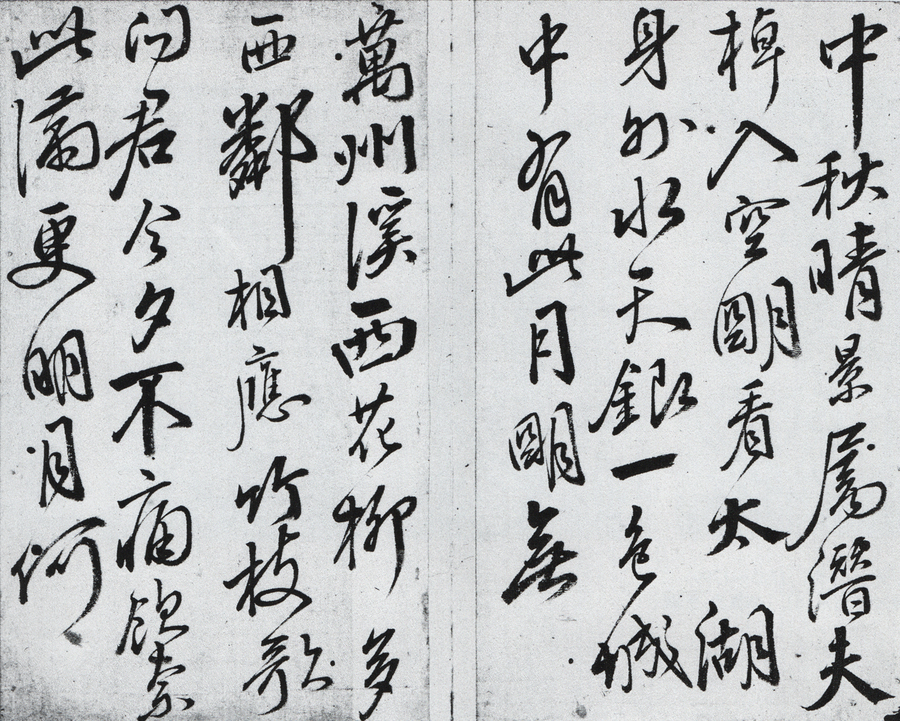 中秋晴景屬潛夫
棹入空明看太湖
身外水天銀一色城
中有此月明無
萬州溪西花柳多
西鄰相應竹枝歌
問君今夕不痛飲奈
此滿更明月何